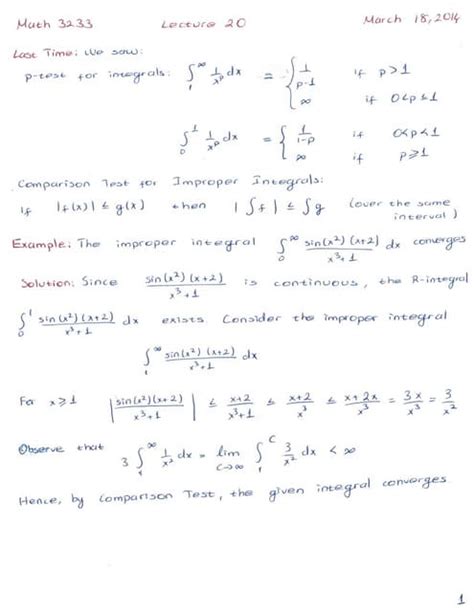 Math 3233 Lecture 20 March 18, 2014
Last Time: We saw:
p-test for integrals: ∫_1^∞ 1/x^p dx = { 1/(p-1) if p>1
∞ if 0<p≤1
∫_0^1 1/x^p dx = { 1/(1-p) if 0<p<1
∞ if p≥1
Comparison Test for Improper Integrals:
If |f(x)| ≤ g(x) then |∫f| ≤ ∫g (over the same
interval)
Example: The improper integral ∫_0^∞ sin(x²)(x+2)/(x³+1) dx converges
Solution: Since sin(x²)(x+2)/(x³+1) is continuous, the R-integral
∫_0^1 sin(x²)(x+2)/(x³+1) dx exists. Consider the improper integral
∫_1^∞ sin(x²)(x+2)/(x³+1) dx
For x≥1 |sin(x²)(x+2)/(x³+1)| ≤ (x+2)/(x³+1) ≤ (x+2)/x³ ≤ (x+2x)/x³ = 3x/x³ = 3/x²
Observe that
3∫_1^∞ 1/x² dx = lim_{c→∞} ∫_1^c 3/x² dx < ∞
Hence, by Comparison Test, the given integral converges
1